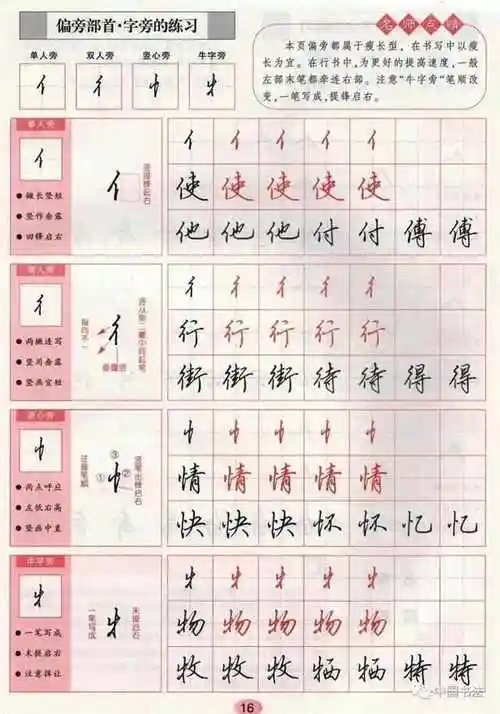 偏旁部首·字旁的练习
单人旁 双人旁 竖心旁 牛字旁
亻 彳 忄 牜
名师点睛
本页偏旁都属于瘦长型,在书写中以瘦
长为宜。在行书中,为更好的提高速度,一般
左部末笔都牵连右部。注意"牛字旁"笔顺改
变,一笔写成,提锋启右。
单人旁
亻
撇长竖短
竖作垂露
回锋启右
亻
竖提锋起右
亻 亻 亻 亻 亻
使 使 使 使 使
他 他 他 付 付 傅 傅
双人旁
彳
两撇连写
竖习垂露
竖画宜短
指向不一
彳
彳 彳 彳 彳 彳
行 行 行 行 行
街 街 街 待 待 得 得
竖心旁
忄
两点呼应
左低右高
竖画中直
注意笔顺
③
①
②
忄
忄 忄 忄 忄 忄
情 情 情 情 情
快 快 快 怀 怀 忆 忆
牛字旁
牜
一笔写成
末提启右
注意挫让
一笔写成
牜
末提启右
牜 牜 牜 牜 牜
物 物 物 物 物
牧 牧 牧 牺 牺 特 特
16
中国书法